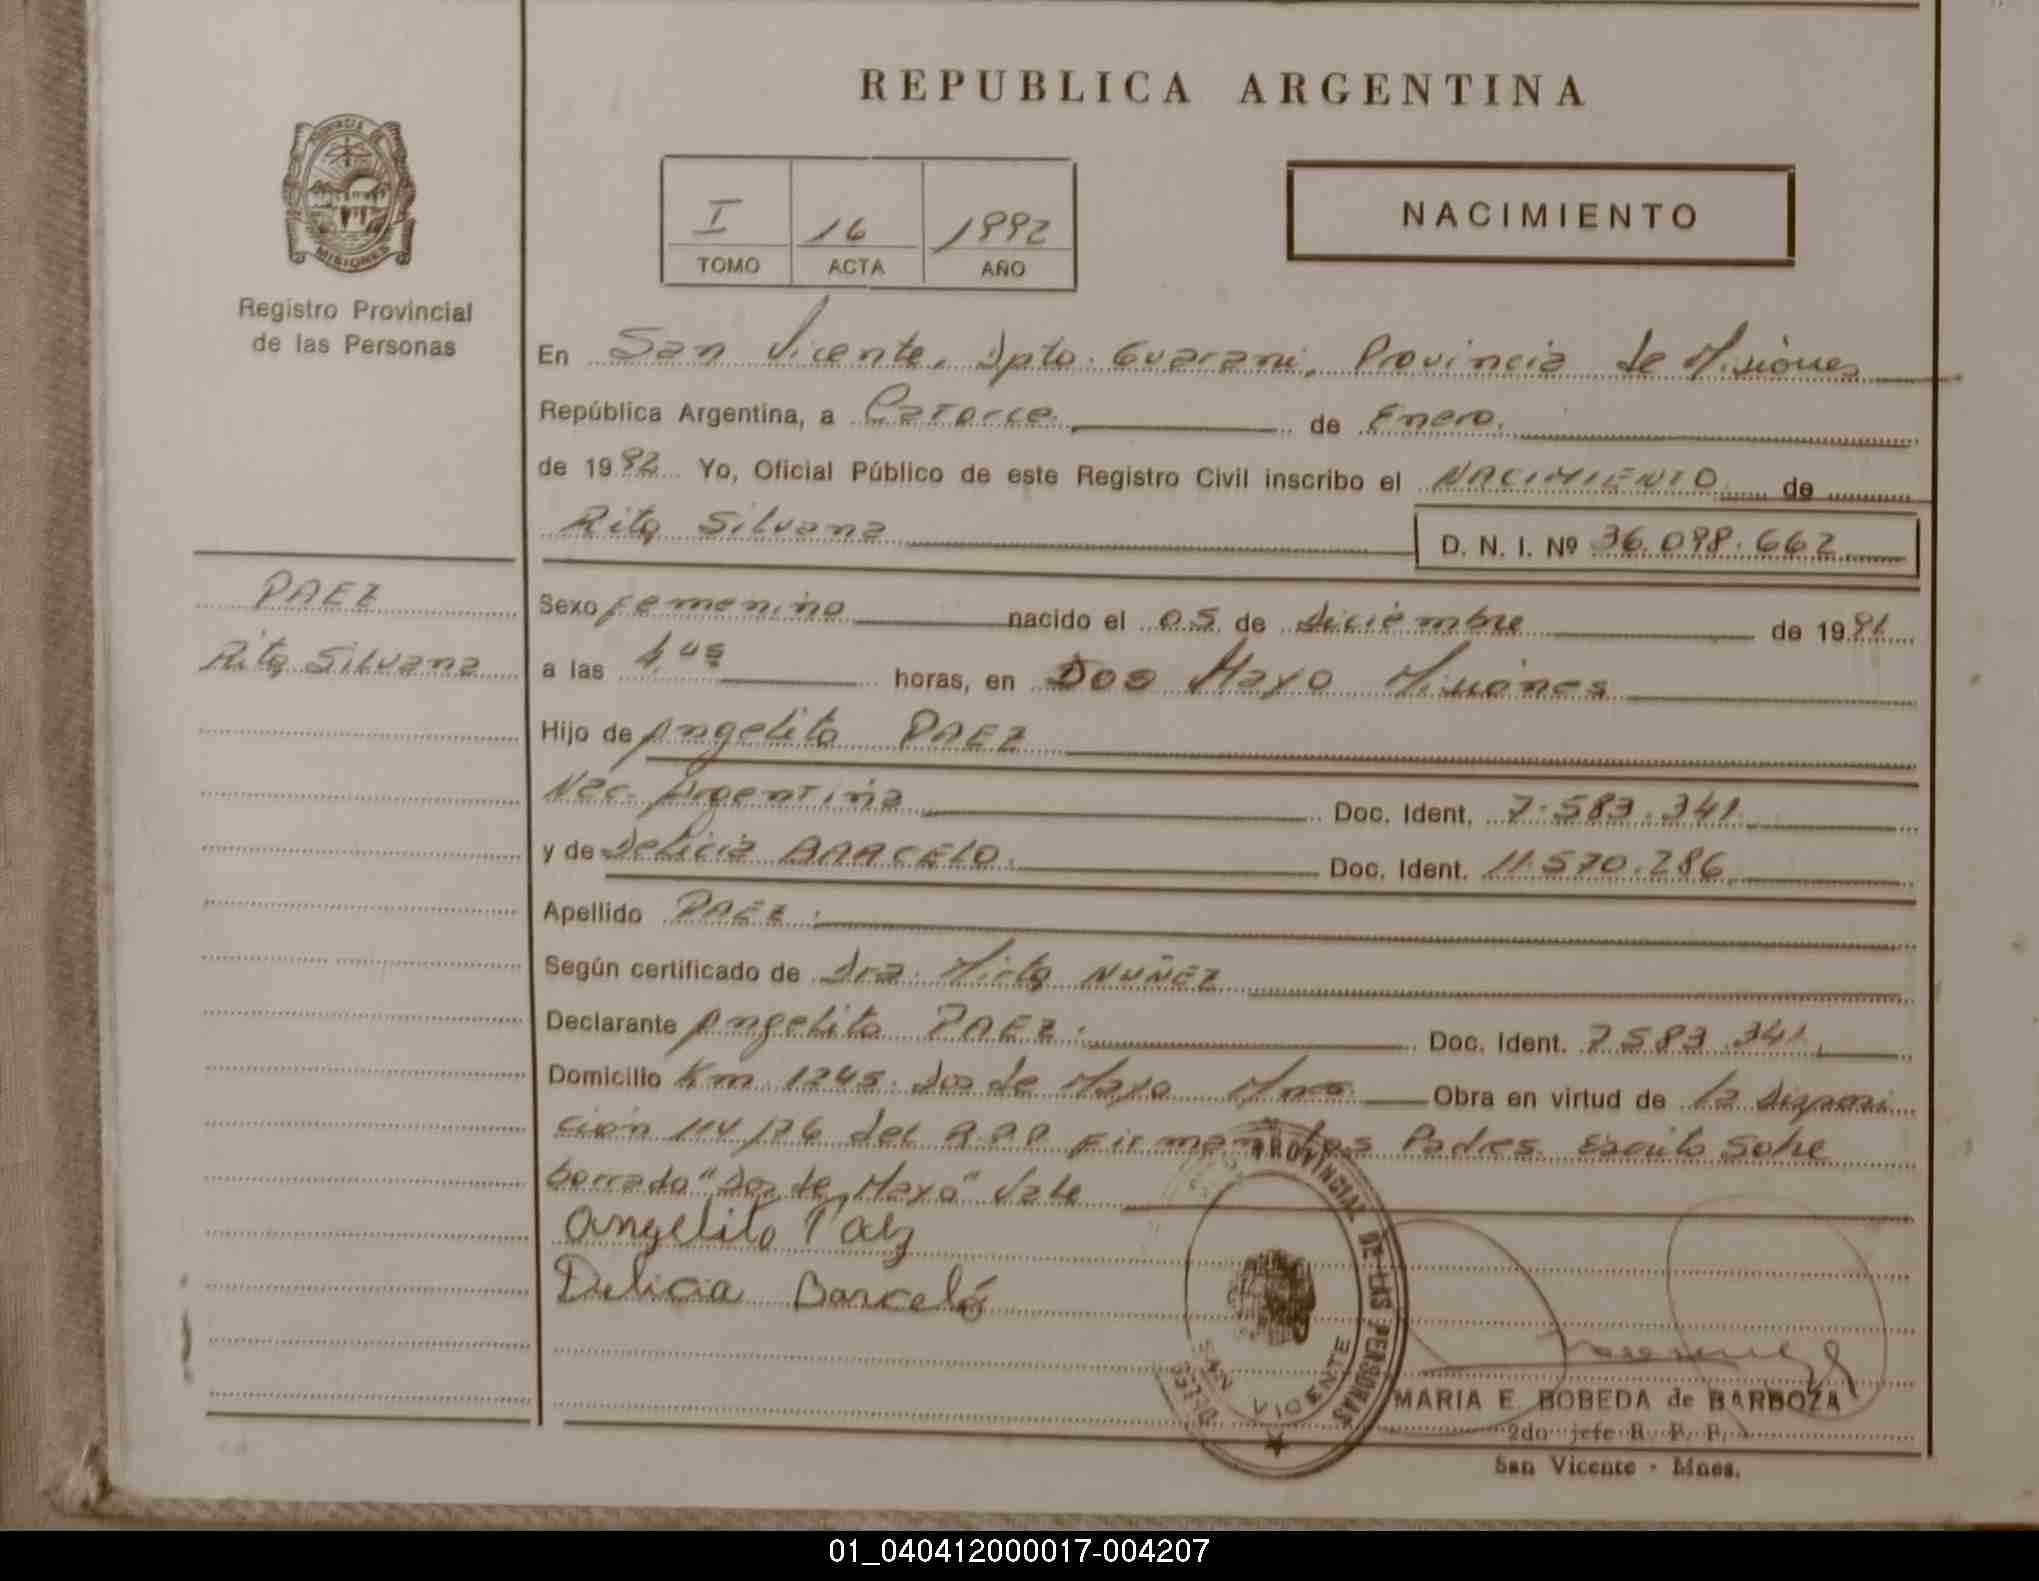 REPUBLICA ARGENTINA
PROVINCIA DE
MISIONES
Registro Provincial
de las Personas
I 16 1992
TOMO ACTA AÑO
NACIMIENTO
En San Vicente, Dpto. Guarani, Provincia de Misiones
República Argentina, a Catorce de Enero.
de 1992 Yo, Oficial Público de este Registro Civil inscribo el NACIMIENTO de
Rita Silvana D. N. I. Nº 36.098.662
PAEZ
Rita Silvana
Sexo femenino nacido el 05 de Diciembre de 1991
a las horas, en Dos Mayo Misiones
Hijo de Angelito PAEZ
Nac. Argentina Doc. Ident. 7.583.341
y de Delicia BARCELO. Doc. Ident. 11.570.286
Apellido PAEZ.
Según certificado de Dra. Mirta NUÑEZ
Declarante Angelito PAEZ. Doc. Ident. 7583.341
Domicilio Km. 1245. Dos de Mayo Mnes. Obra en virtud de la disposi
ción 114/76 del R.P.P firman los Padres. Escrito Sobre
borrado "Dos de Mayo" Vale
Angelito Paez
Delicia Barceló
PROVINCIAL DE LAS PERSONAS
DELEG
SAN VICENTE
MARIA E. BOBEDA de BARBOZA
2do jefe R. P. P.
San Vicente - Mnes.
01_040412000017-004207